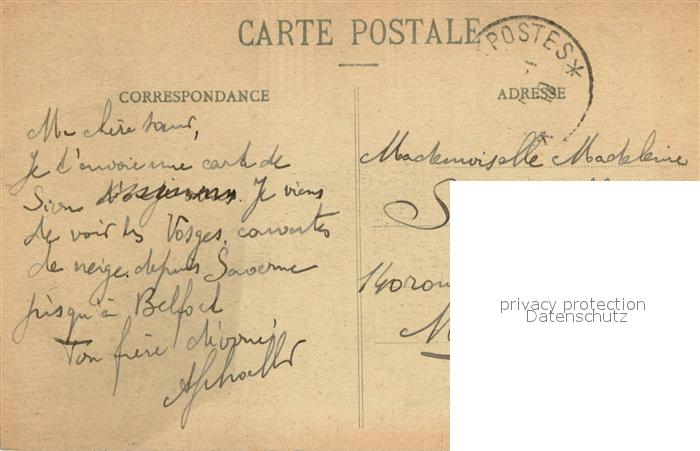 CARTE POSTALE
POSTES
CORRESPONDANCE
ADRESSE
Ma chère sœur,
Je t'envoie une carte de
Sion. Je viens
de voir les Vosges, couvertes
de neige, depuis Saverne
jusqu'à Belfort
Ton frère dévoué
Mademoiselle Madeleine
S
M
privacy protection
Datenschutz